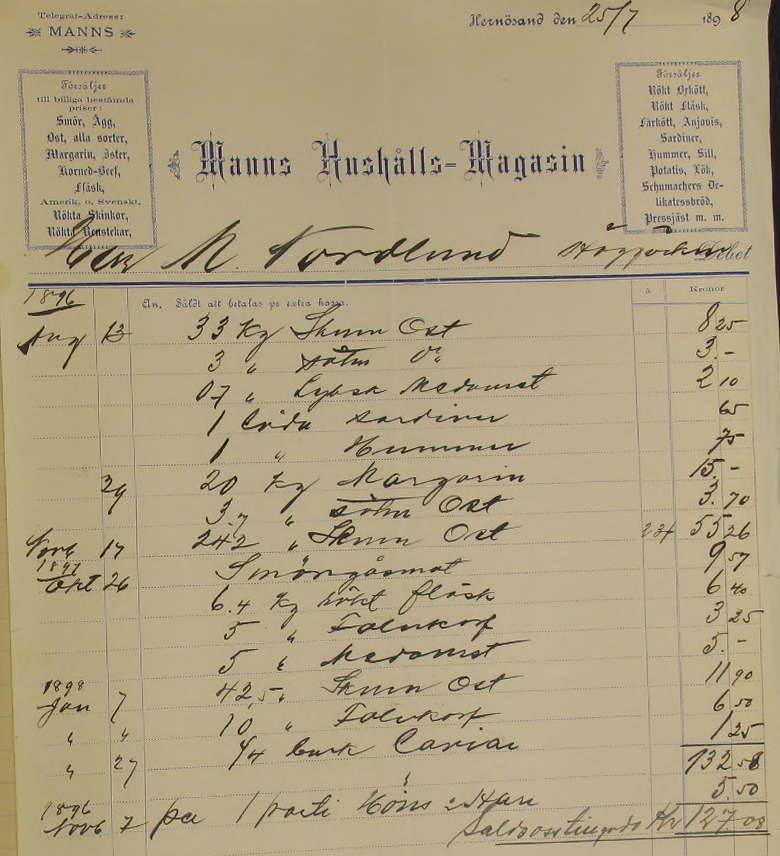 Telegraf-Adress:
MANNS
Hernösand den 25/7 1898
Försäljer
till billiga bestämda
priser:
Smör, Ägg,
Ost, alla sorter,
Margarin, Ister,
Korned-Beef,
Fläsk,
Amerik. o. Svenskt.
Rökta Skinkor,
Rökta Renstekar,
Manns Hushålls-Magasin
Försäljer
Rökt Orkött,
Rökt Fläsk,
Fårkött, Anjovis,
Sardiner,
Hummer, Sill,
Potatis, Lök,
Schumachers De-
likatessbröd,
Pressjäst m. m.
M. Nordlund Debet
1896 An. Såldt att betalas pr extra kassa. à Kronor
Aug 13 33 Kg Skum Ost 8 25
3 " sötm do 3.-
07 " Lybsk Medwurst 2 10
1 låda sardiner 65
1 " Hummer 75
20 Kg Margarin 15.-
3.7 " sötm Ost 3.70
Novb 17 242 " Skum Ost 55 26
1897
Okt 26 Smörgåsmat 9 57
6.4 Kg rökt fläsk 6 40
5 " Falukorf 3 25
5 " Medwurst 5.-
1898
Jan 7 42,5 " Skum Ost 11 90
" " 10 " Falukorf 6 50
" 27 1/4 burk Caviar 1 25
132 58
1896
Novb 7 per 1 parti Höns 5.50
Kr 127.08